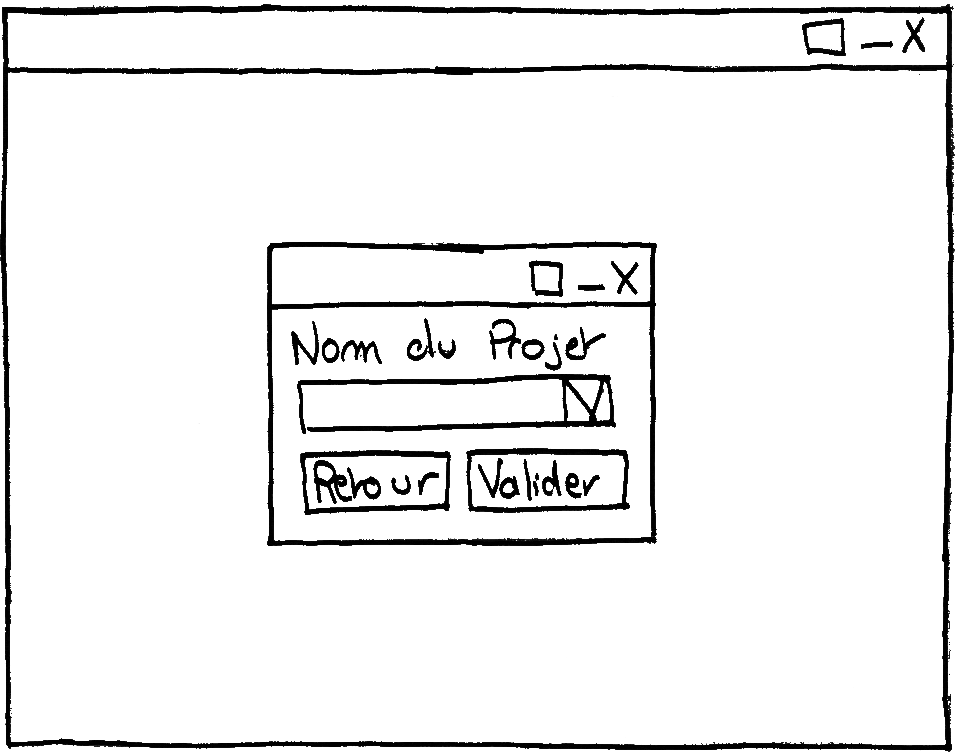 Nom du Projet
Retour
Valider